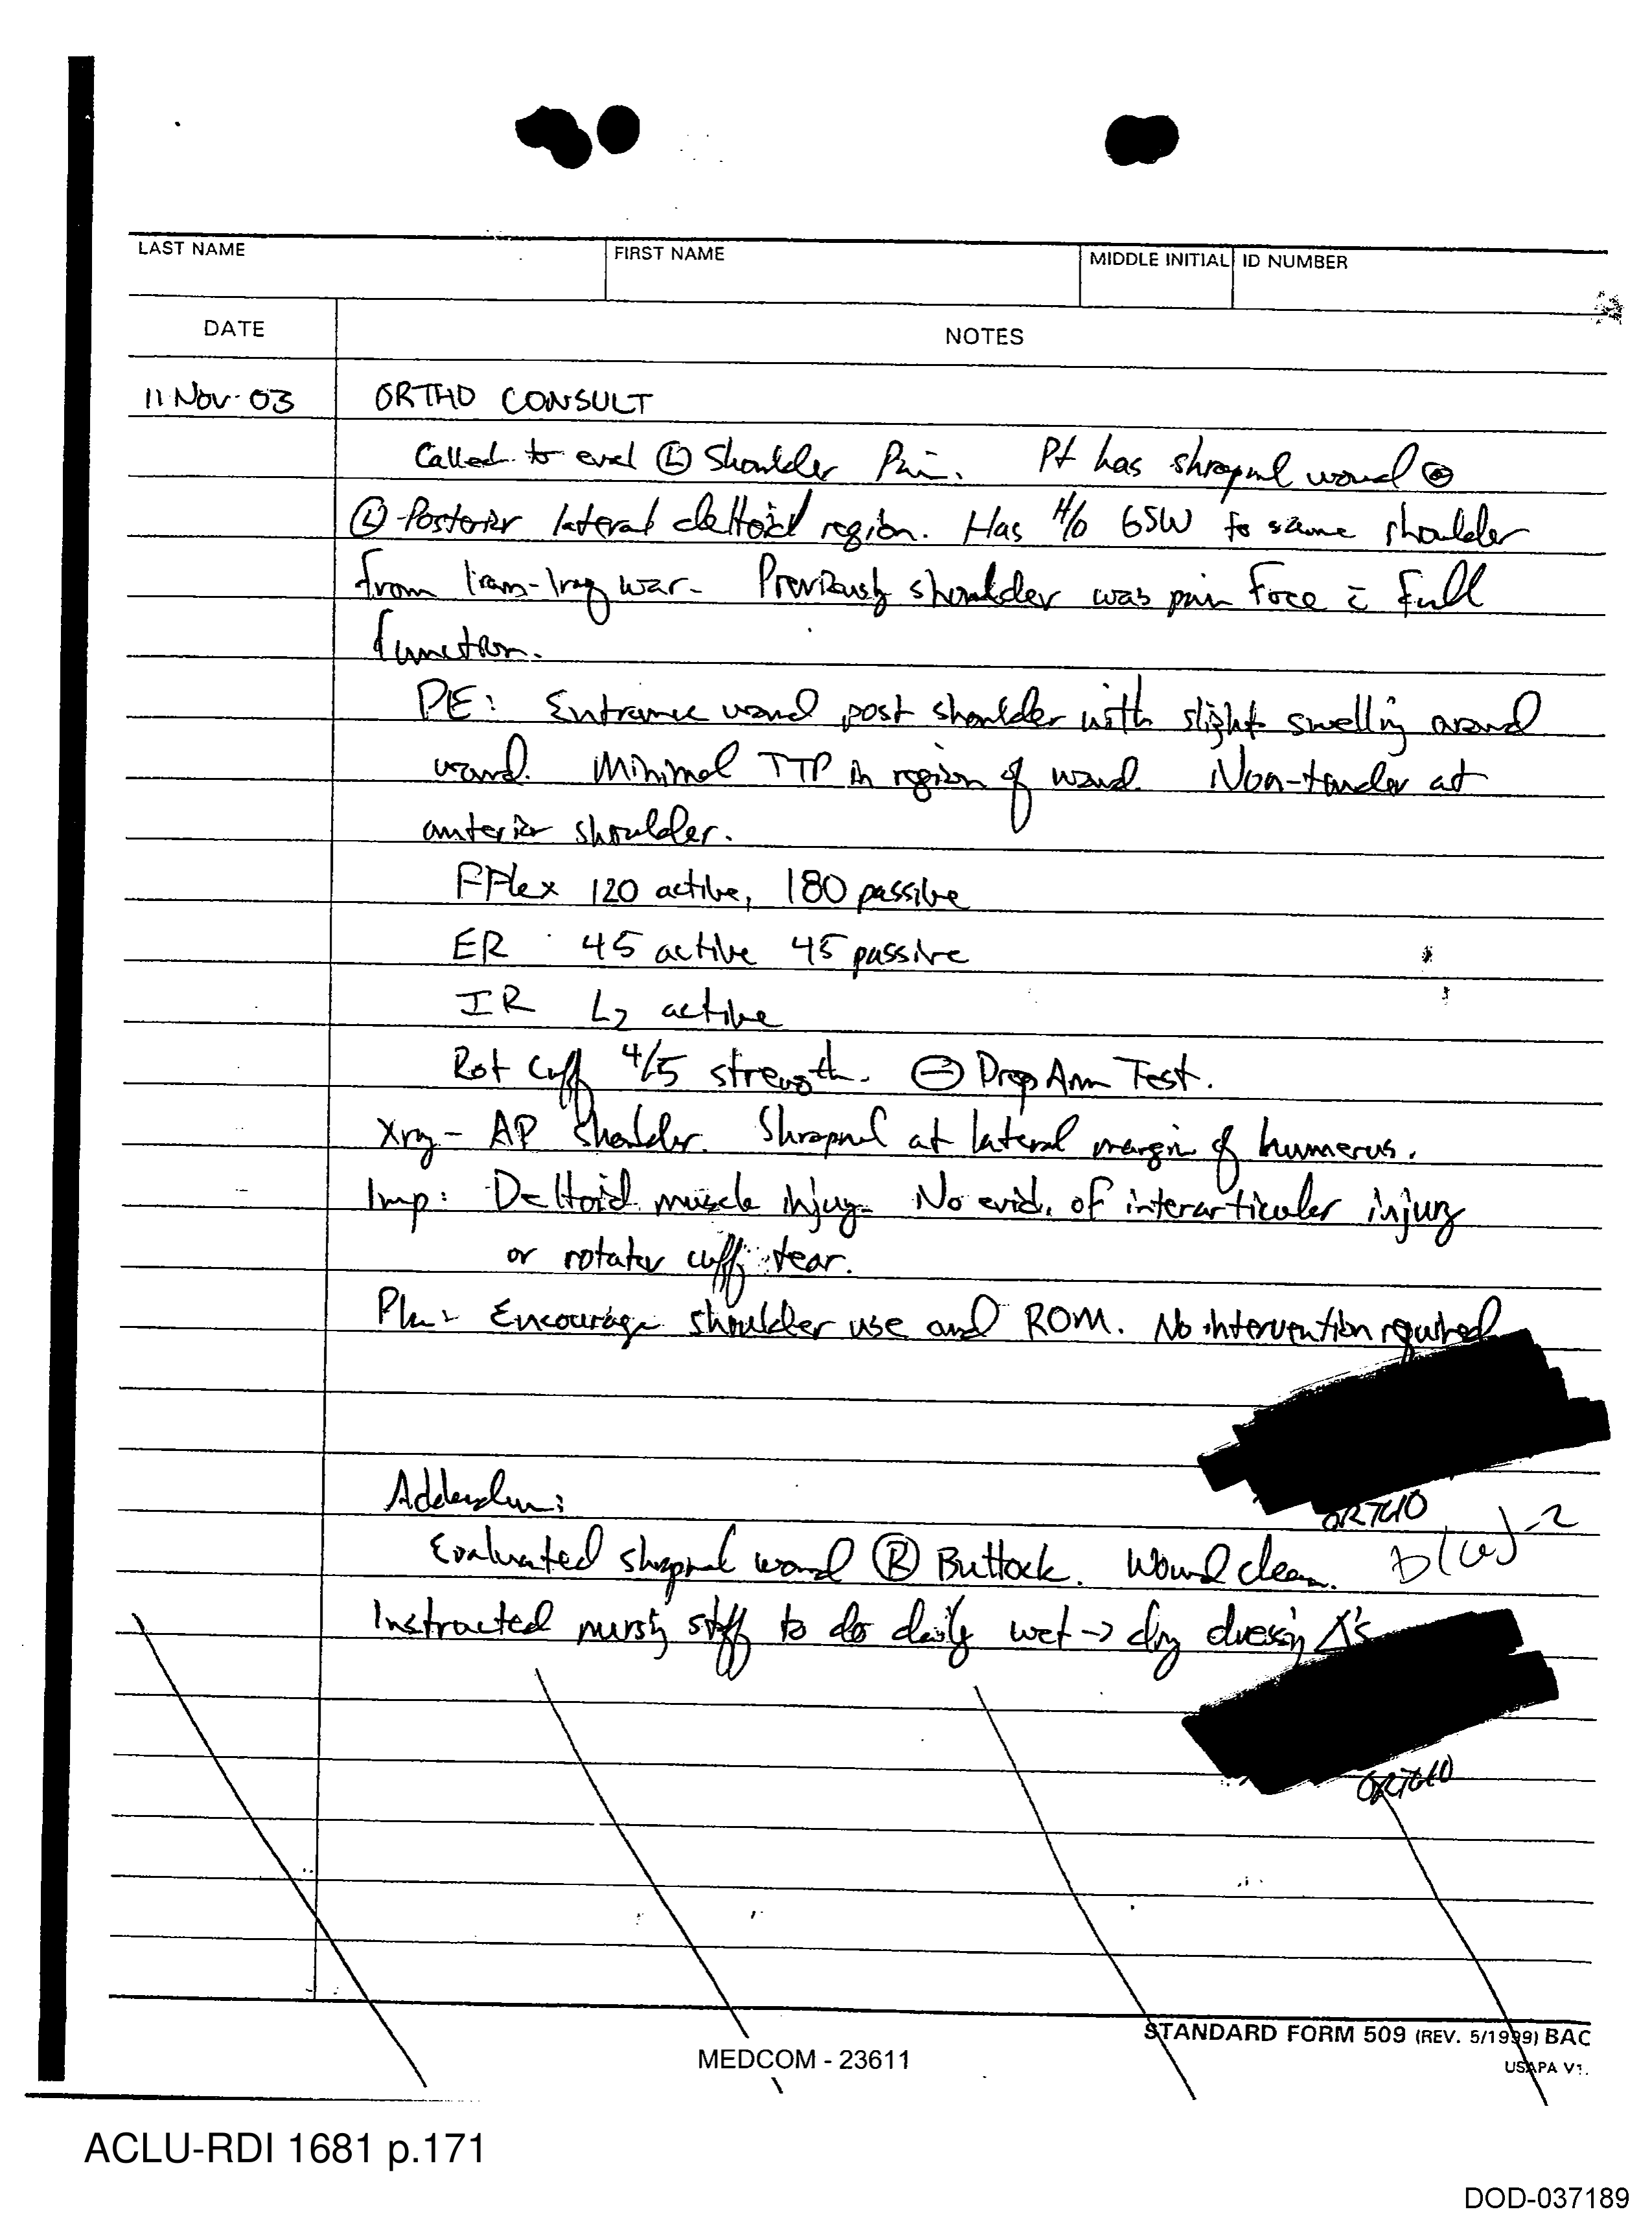 LAST NAME FIRST NAME MIDDLE INITIAL ID NUMBER
DATE NOTES
11 Nov 03 ORTHO CONSULT
Called to eval Ⓛ Shoulder Pain. Pt has shrapnel wound @
Ⓛ Posterior lateral deltoid region. Has H/o GSW to same shoulder
from Iran-Iraq war. Previously shoulder was pain free c̄ full
function.
PE: Entrance wound post shoulder with slight swelling around
wound. Minimal TTP in region of wound. Non-tender at
anterior shoulder.
FFlex 120 active, 180 passive
ER 45 active 45 passive
IR active
Rot Cuff 4/5 strength. ⊖ Drop Arm Test.
Xray - AP Shoulder. Shrapnel at lateral margin of humerus.
Imp: Deltoid muscle injury. No evid. of interarticular injury
or rotator cuff tear.
Plan: Encourage shoulder use and ROM. No intervention required
ORTHO
Addendum:
b(6)-2
Evaluated shrapnel wound Ⓡ Buttock. Wound clean.
Instructed nursing staff to do daily wet → dry dressing Δ's
ORTHO
STANDARD FORM 509 (REV. 5/1999) BAC
USAPA V1.
MEDCOM - 23611
ACLU-RDI 1681 p.171
DOD-037189